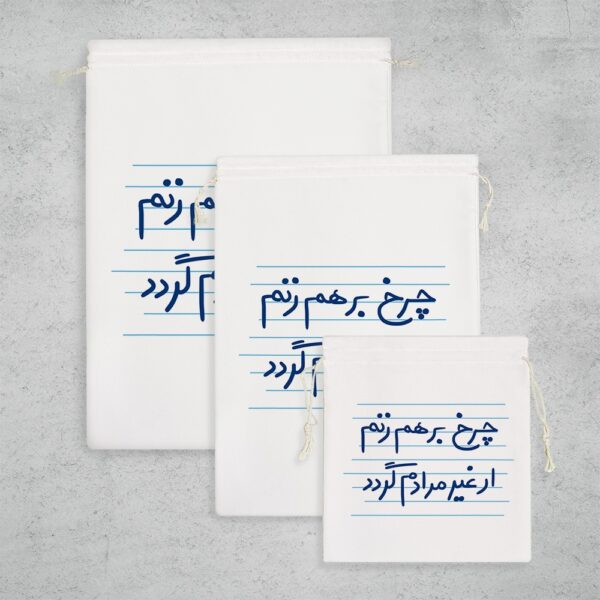 م زنم
م گردد
چرخ برهم زنم
م گردد
چرخ برهم زنم
ار غیر مرادم گردد